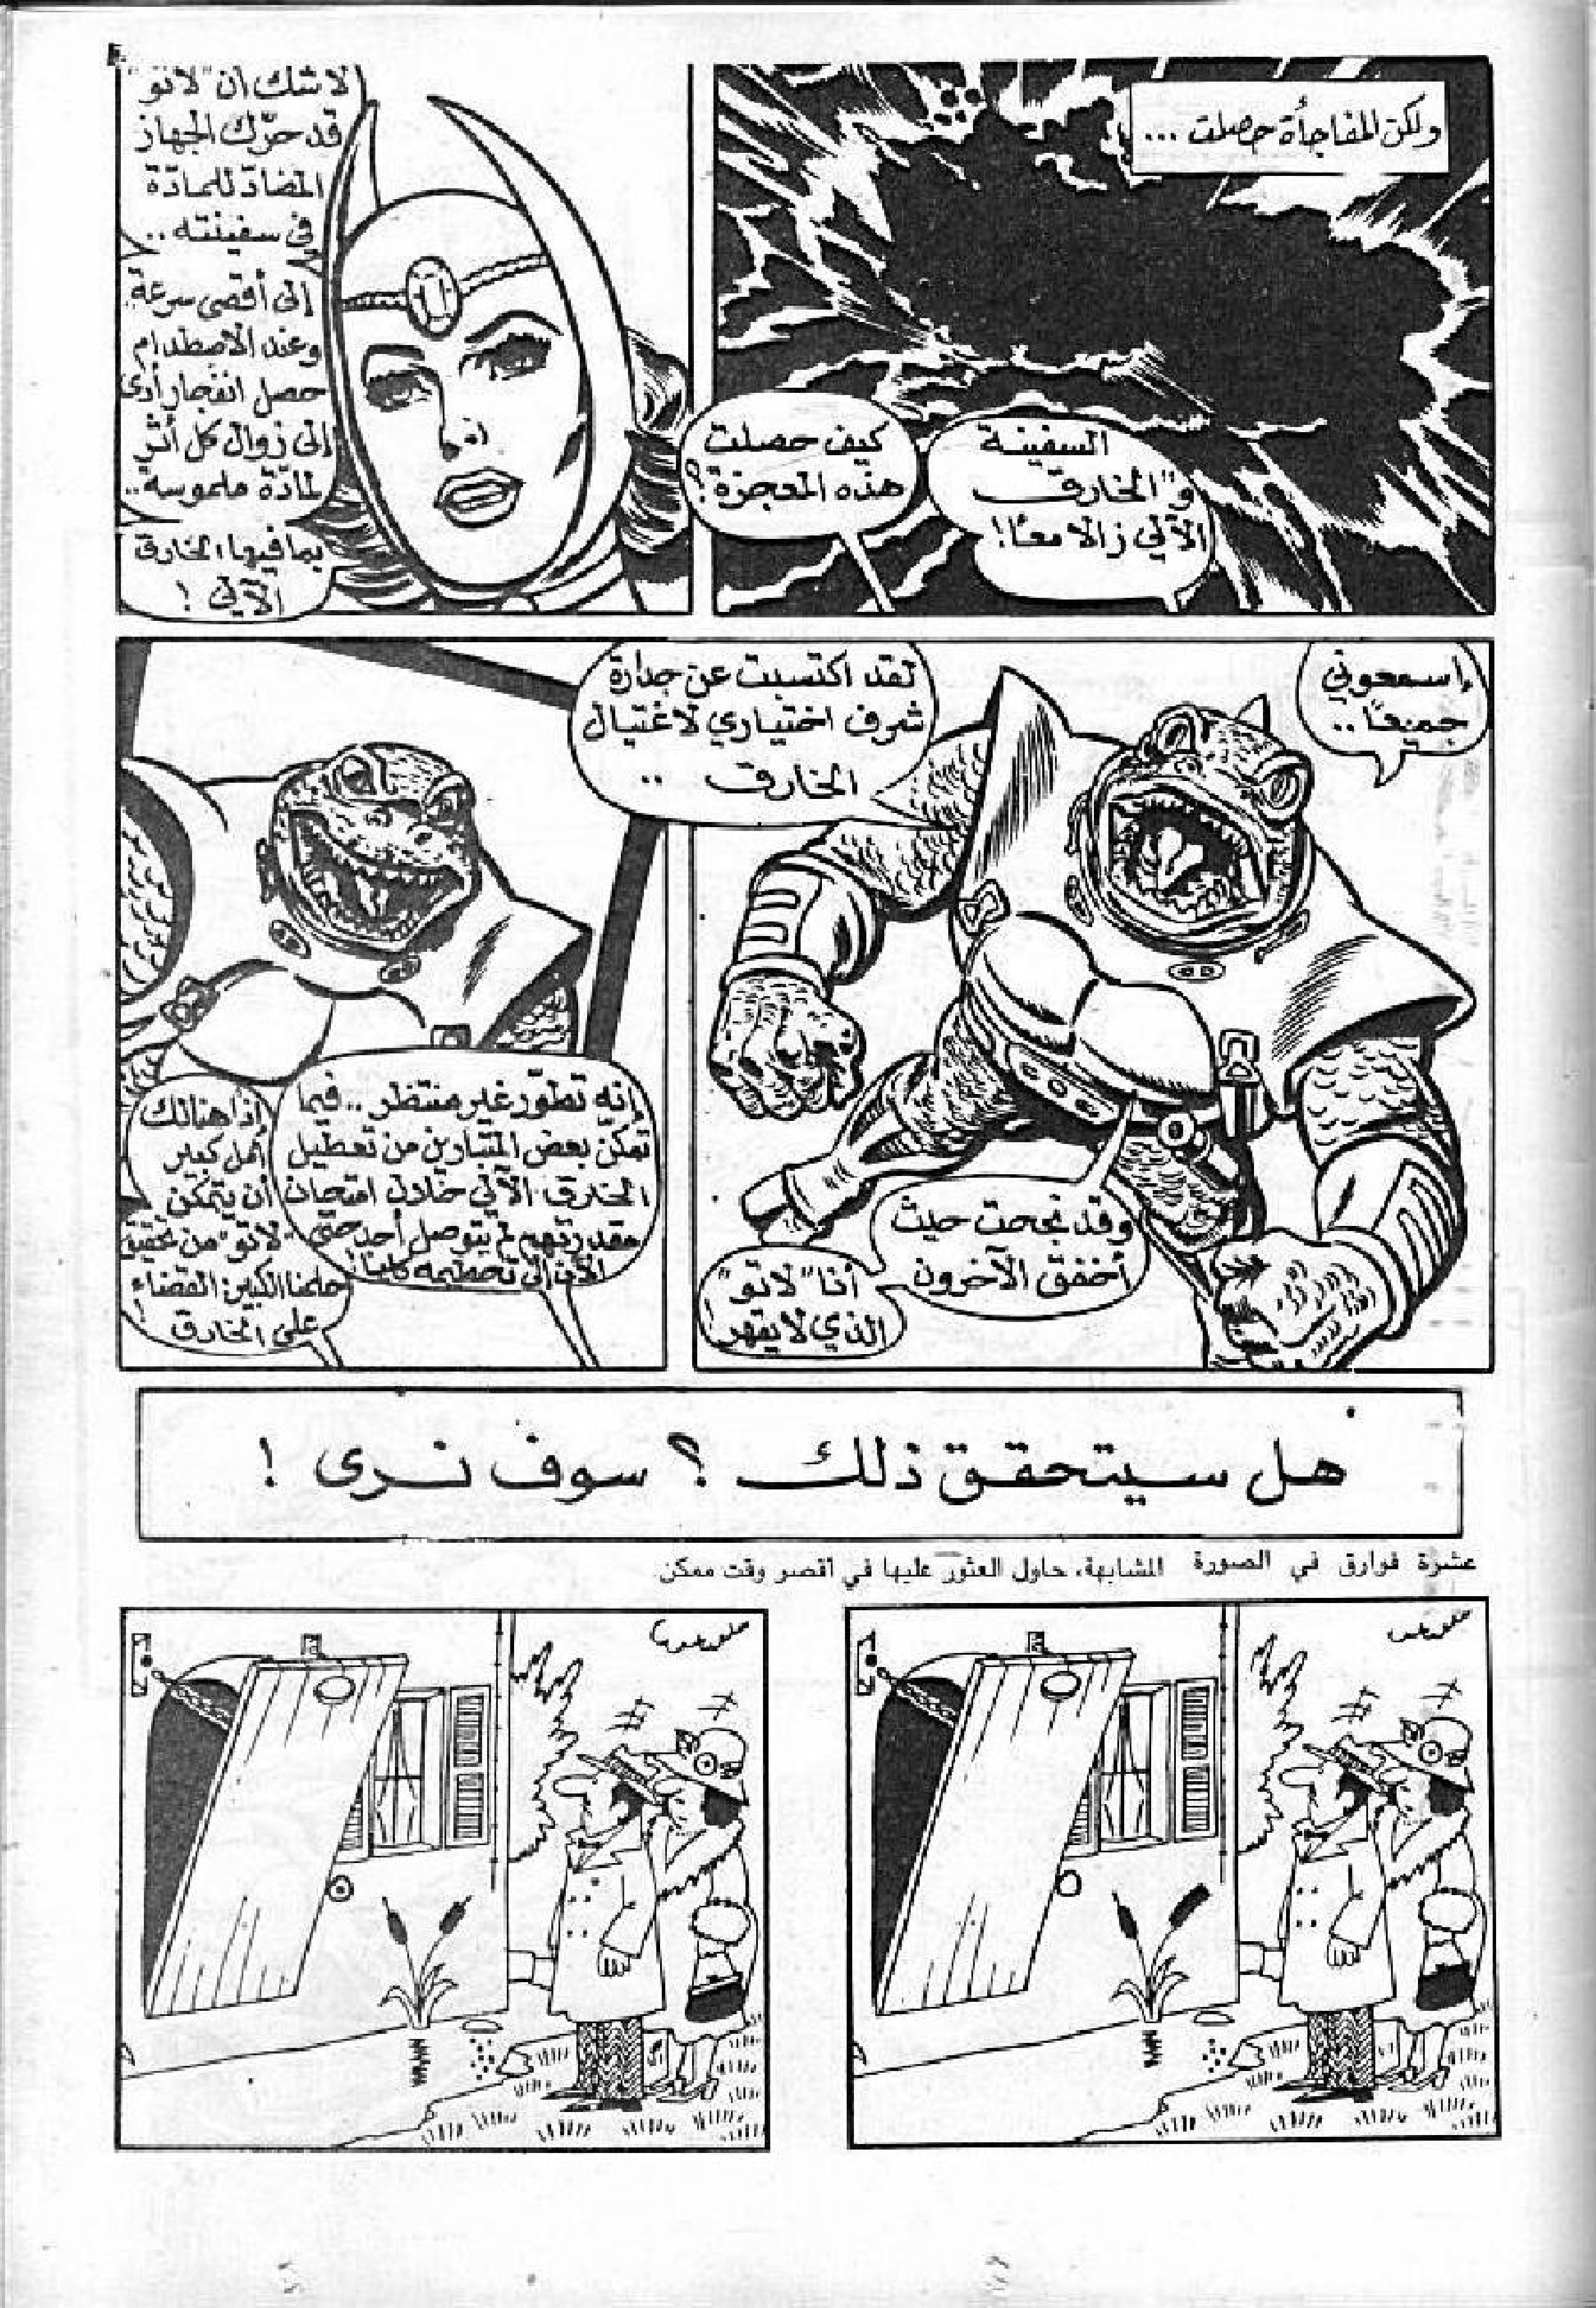 ولكن المفاجأة حصلت ...
السفينة
و"الخارق
الآلي زالا معًا!
كيف حصلت
هذه المعجزة؟
لا شك ان "لاتو"
قد حرّك الجهاز
المضادّ للمادّة
في سفينته ..
إلى أقصى سرعة..
وعند الاصطدام
حصل انفجار أدى
إلى زوال كل أثر
لمادّة ملموسة..
بما فيها الخارق
الآلي !
إسمعوني
جميعًا ..
لقد اكتسبت عن جدارة
شرف اختياري لاغتيال
الخارق ..
وقد نجحت حيث
أخفق الآخرون
أنا "لاتو"
الذي لا يقهر!
إنه تطوّر غير منتظر .. فيما
تمكّن بعض المتبارين من تعطيل
الخارق الآلي خلال امتحان
مقدرتهم لم يتوصل أحد حتى
الآن إلى تحطيمه كليًا!
إذا هنالك
أمل كبير
أن يتمكن
"لاتو" من تحقيق
حلمنا الكبير: القضاء
على الخارق!
هل سيتحقق ذلك ؟ سوف نرى !
عشرة فوارق في الصورة المشابهة، حاول العثور عليها في اقصر وقت ممكن.